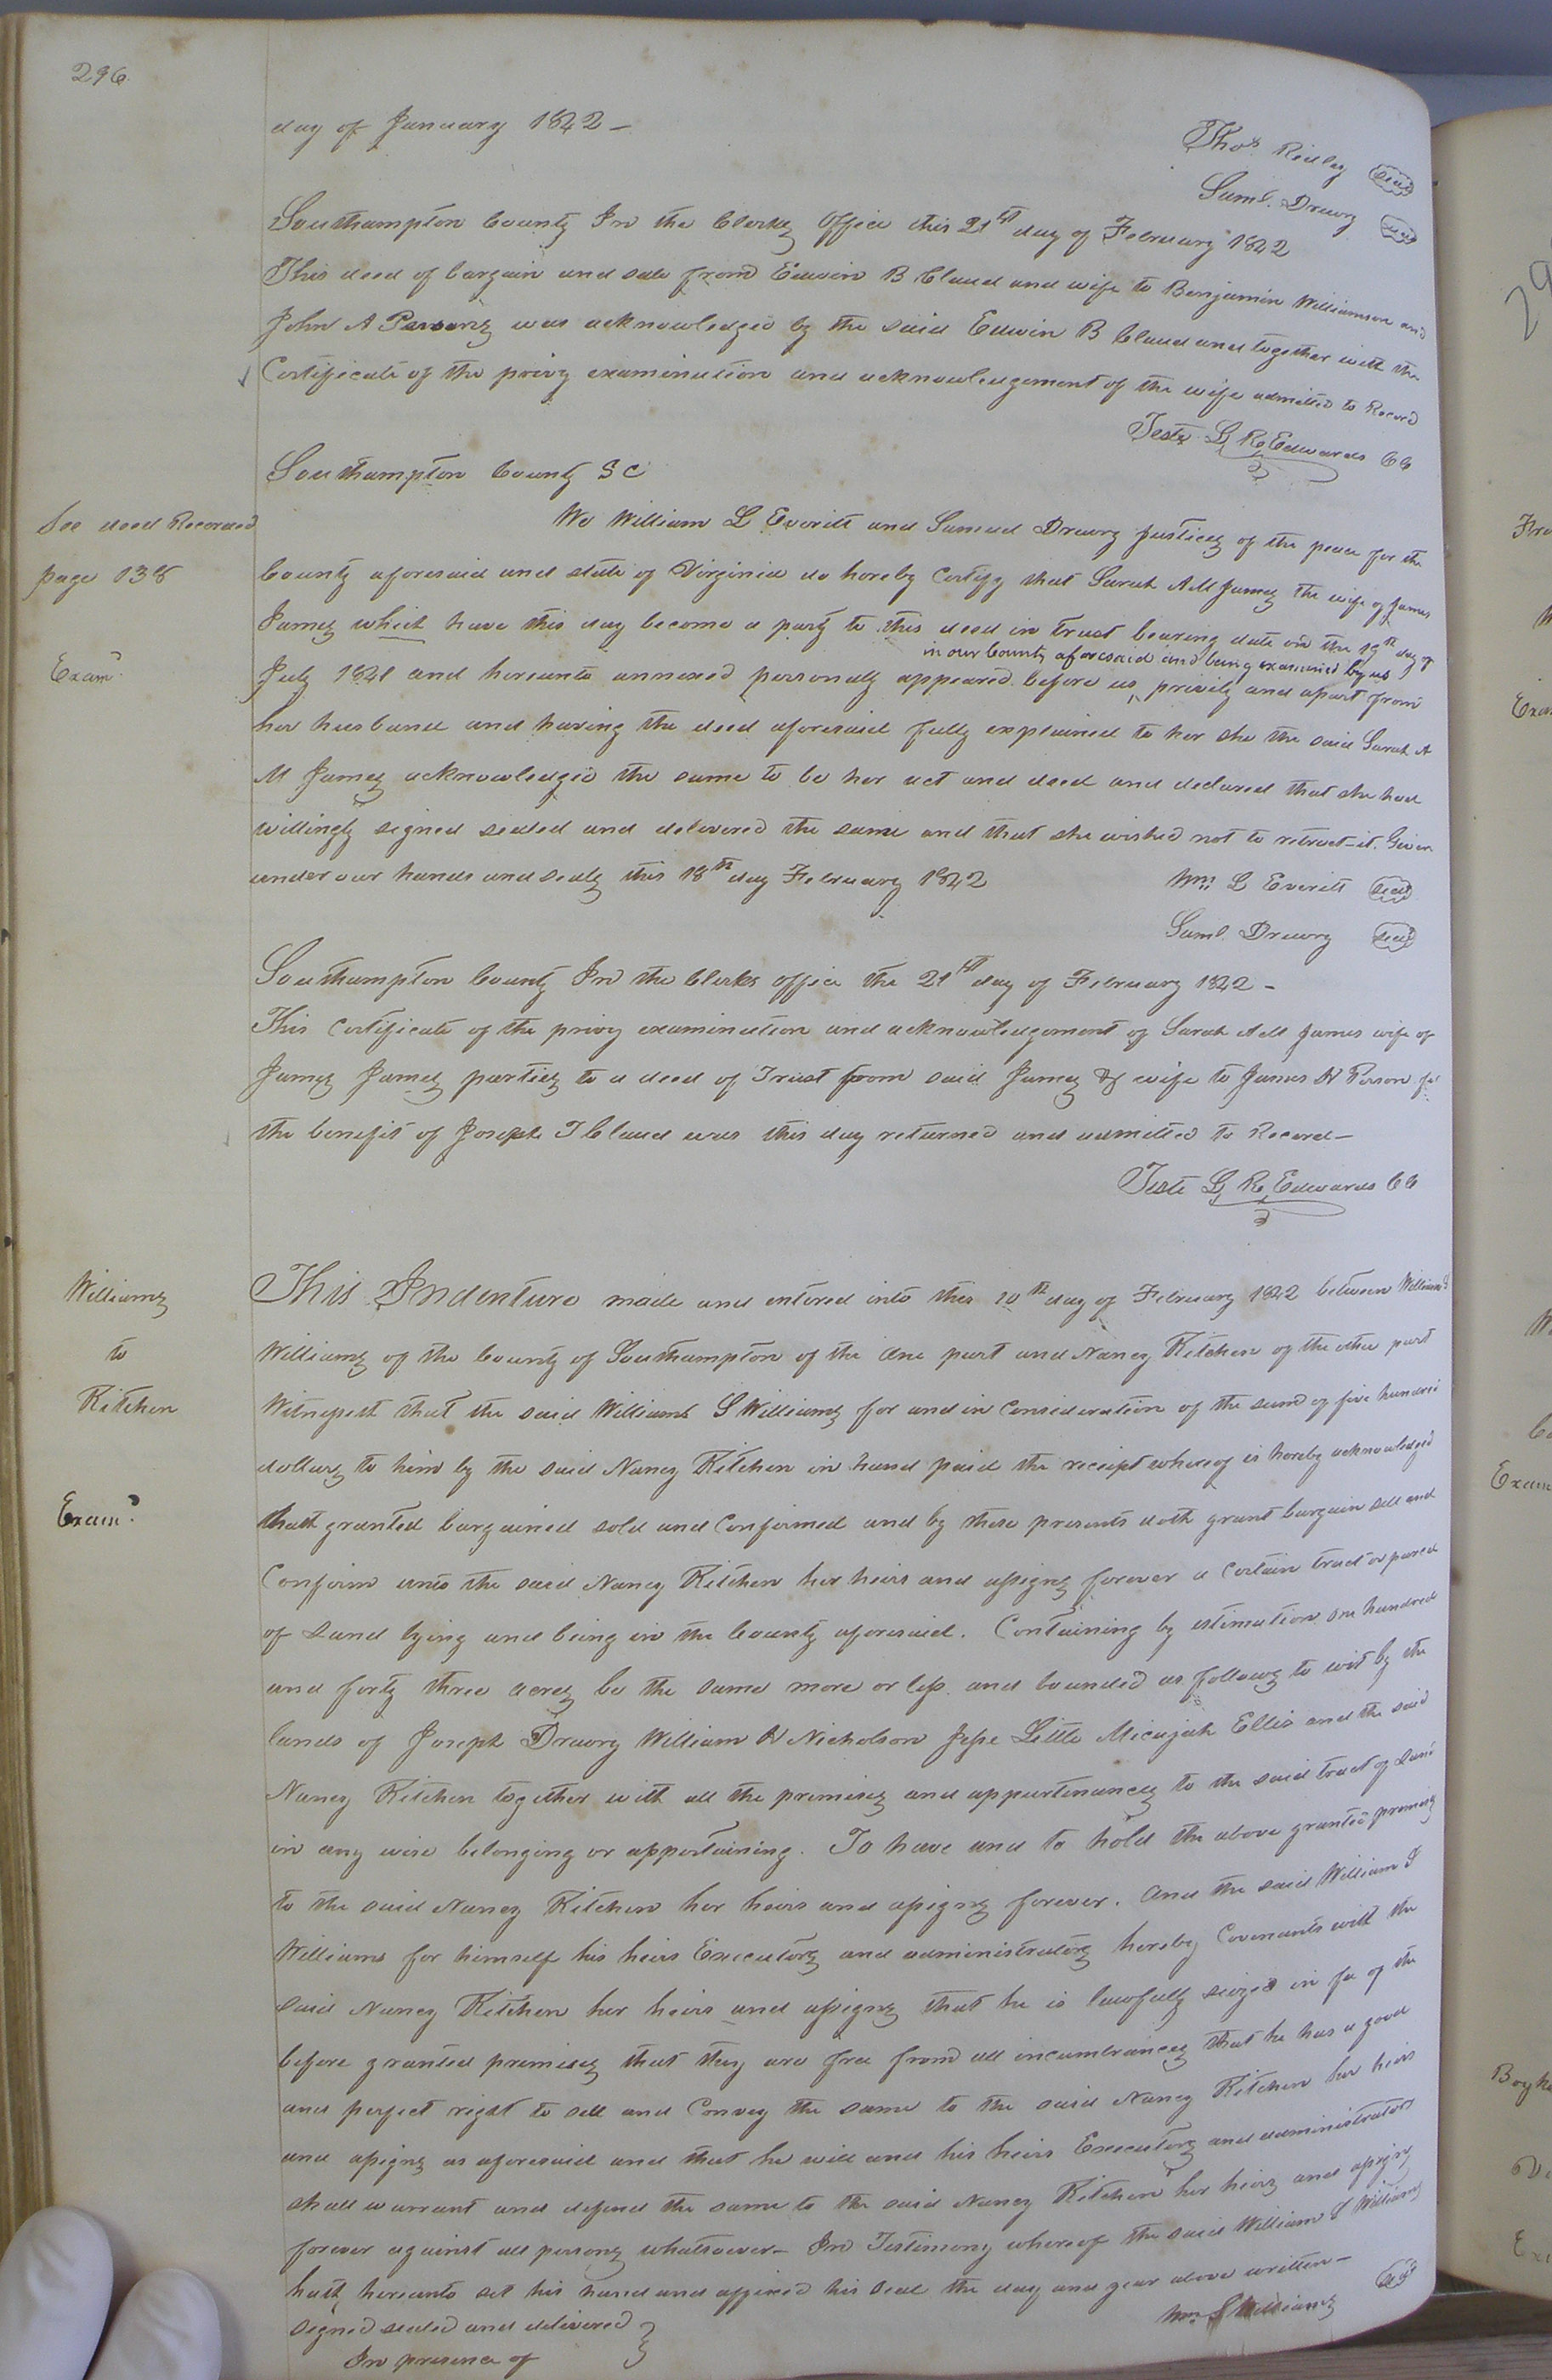 296
day of January 1842 -
Thos Ridley seal
Saml. Drewry seal
Southampton County In the Clerks Office this 21st day of February 1842
This deed of bargain and sale from Edwin B Claud and wife to Benjamin Williamson and
John A Persons was acknowledged by the said Edwin B Claud and together with the
Certificate of the privy examination and acknowledgement of the wife admitted to Record
Teste L R Edwards CC
Southampton County SC
See deed Recorded
page 138
Exam.d
We William L Everitt and Samuel Drewry Justices of the peace for the
County aforesaid and state of Virginia do hereby Certify that Sarah A M James the wife of James
James which have this day become a party to this deed in trust bearing date on the 19th day of
in our County aforesaid and being examined by us
July 1841 and hereunto annexed personally appeared before us ^ privily and apart from
her husband and having the deed aforesaid fully explained to her she the said Sarah A
M James acknowledged the same to be her act and deed and declared that she had
willingly signed sealed and delivered the same and that she wished not to retract it. Given
under our hands and seals this 18th day February 1842
Wm: L Everitt seal
Saml. Drewry seal
Southampton County In the Clerks office the 21st day of February 1842 -
This Certificate of the privy examination and acknowledgement of Sarah A M James wife of
James James parties to a deed of Trust from said James & wife to James H Person for
the benefit of Joseph T Claud was this day returned and admitted to Record -
Teste L R Edwards CC
Williams
to
Kitchen
Exam.d
This Indenture made and entered into this 10th day of February 1842 between William S
Williams of the County of Southampton of the one part and Nancy Kitchen of the other part
Witnesseth that the said William S Williams for and in Consideration of the sum of five hundred
dollars to him by the said Nancy Kitchen in hand paid the receipt whereof is hereby acknowledged
hath granted bargained sold and Confirmed and by these presents doth grant bargain sell and
Confirm unto the said Nancy Kitchen her heirs and assigns forever a Certain tract or parcel
of Land lying and being in the County aforesaid. Containing by estimation one hundred
and forty three acres be the same more or less and bounded as follows to wit by the
lands of Joseph Drewry William H Nicholson Jesse Little Micajah Ellis and the said
Nancy Kitchen together with all the premises and appurtenances to the said tract of Land
in any wise belonging or appertaining. To have and to hold the above granted premises
to the said Nancy Kitchen her heirs and assigns forever. And the said William S
Williams for himself his heirs Executors and administrators hereby Covenants with the
said Nancy Kitchen her heirs and assigns that he is lawfully seized in fee of the
before granted premises that they are free from all incumbrances that he has a good
and perfect right to sell and Convey the same to the said Nancy Kitchen her heirs
and assigns as aforesaid and that he will and his heirs Executors and administrators
shall warrant and defend the same to the said Nancy Kitchen her heirs and assigns
forever against all persons whatsoever - In Testimony whereof the said William S Williams
hath hereunto set his hand and affixed his seal the day and year above written -
Signed sealed and delivered
In presence of
Wm S Williams seal